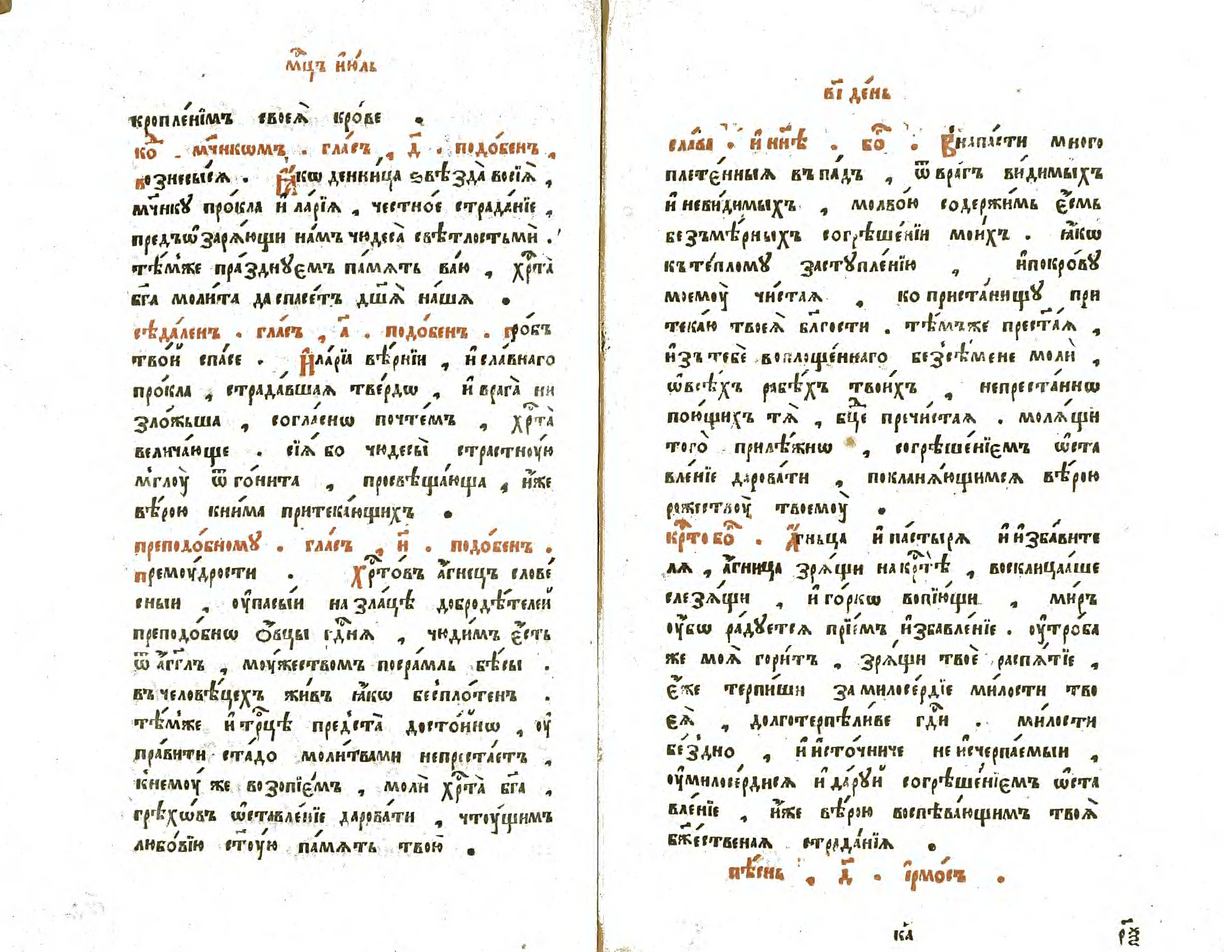 мⷭ҇цъ и҆ю́ль
кропле́нїмъ своеѧ̀ кро́ве .
ко҆ⷣ . мч҃нкѡмъ . гла́съ , д҃ . подо́бенъ ,
вознесы́йсѧ . Ꙗ҆́кѡ денни́ца ѕвѣзда̀ восїѧ̀ ,
мч҃нку про́кла и҆ ла́рїѧ , честно́е страда́нїе ,
предъѡ҆зарѧ́ющи на́мъ чюдеса̀ свѣ́тлостьми .
тѣ́мже пра́зднуємъ па́мѧть ва́ю , хрⷭ҇та̀
бг҃а моли́та да спасе́тъ дш҃ѧ̀ на́шѧ .
сѣда́ленъ . гла́съ , а҃ . подо́бенъ . гро́бъ
тво́й спа́се . И҆ла́рїа вѣ́рнїи , и҆ сла́внаго
про́кла , страда́вшаѧ тве́рдѡ , и҆ врага̀ ни
зло́жьша , согла́снѡ почте́мъ , хрⷭ҇та̀
велича́юще . сїѧ́ бо чюдесы̀ стра́стноую
мглоу̀ ѿ го́нита , просвѣща́юща , и҆́же
вѣ́рою кни́ма притека́ющихъ .
преподо́бному . гла́съ , и҃ . подо́бенъ .
премоу́дрости . Хрⷭ҇то́въ а҆́гнецъ слове́
сныи , ѹ҆пасы́и на зла́цѣ доброде́телей
преподо́бнѡ ѻ҆́вцы гдⷭ҇нѧ , чюди́мъ є҆́сть
ѿ а҆́гг҃лъ , моу́жествомъ посра́мль бѣ́сы .
въ человѣ́цехъ жи́въ ꙗ҆́кѡ беспло́тенъ .
тѣ́мже и҆ трⷪ҇цѣ предста̀ досто́йнѡ , ѹ҆
пра́вити ста́до моли́твами непреста́етъ ,
к немоу́ же возопїе́мъ , молѝ хрⷭ҇та̀ бг҃а ,
грѣхѡ́въ ѡ҆ставле́нїе дарова́ти , чтоу́щимъ
любо́вїю ст҃оую па́мѧть твою̀ .
в҃і де́нь
сла́ва . и҆ ны́нѣ . бо҆ⷢ . В напа́сти много
плете́нныѧ въ па́дъ , ѿ вра́гъ ви́димыхъ
и҆ неви́димыхъ , молво́ю содержи́мь є҆́смь
безъмѣ́рныхъ согрѣше́нїи мои́хъ . ꙗ҆́кѡ
къ те́плому заступле́нїю , и҆ покро́ву
моемоу̀ чи́стаѧ , ко приста́нищу при
тека́ю твоеѧ̀ бл҃гости . тѣ́мъже прест҃а́ѧ ,
и҆зъ тебѐ воплоще́ннаго безсѣ́мене молѝ ,
ѡ҆ всѣ́хъ рабѣ́хъ твои́хъ , непреста́ннѡ
пою́щихъ тѧ̀ , бцⷣе пречи́стаѧ . молѧ́щи
того̀ прилѣ́жнѡ , согрѣше́нїємъ ѡ҆ста
вле́нїе дарова́ти , поклана́ющимсѧ вѣ́рою
рожествоу̀ твоемоу̀ .
крⷭ҇то бо҆ⷢ . А҆́гньца и҆ па́стырѧ и҆ и҆зба́вите
лѧ , а҆́гница зрѧ́щи на крⷭ҇тѣ̀ , восклица́аше
слезѧ́щи , и҆ го́ркѡ вопїю́щи , ми́ръ
ѹ҆́бѡ ра́дуетсѧ прїе́мъ и҆збавле́нїе . ѹ҆тро́ба
же моѧ̀ гори́тъ , зрѧ́щи твоѐ распѧ́тїе ,
є҆́же терпи́ши за милосе́рдїе ми́лости тво
еѧ̀ , долготерпѣли́ве гдⷭ҇и . ми́лости
бе́здно , и҆ и҆сто́чниче не и҆счерпа́емыи ,
ѹ҆милосе́рдисѧ и҆ да́руй согрѣше́нїємъ ѡ҆ста
вле́нїе , и҆́же вѣ́рою воспѣва́ющимъ твоѧ̀
бж҃е́ственаѧ страда́нїѧ .
пѣ́снь , д҃ . і҆рмо́съ .
ка҃ рѯ҃